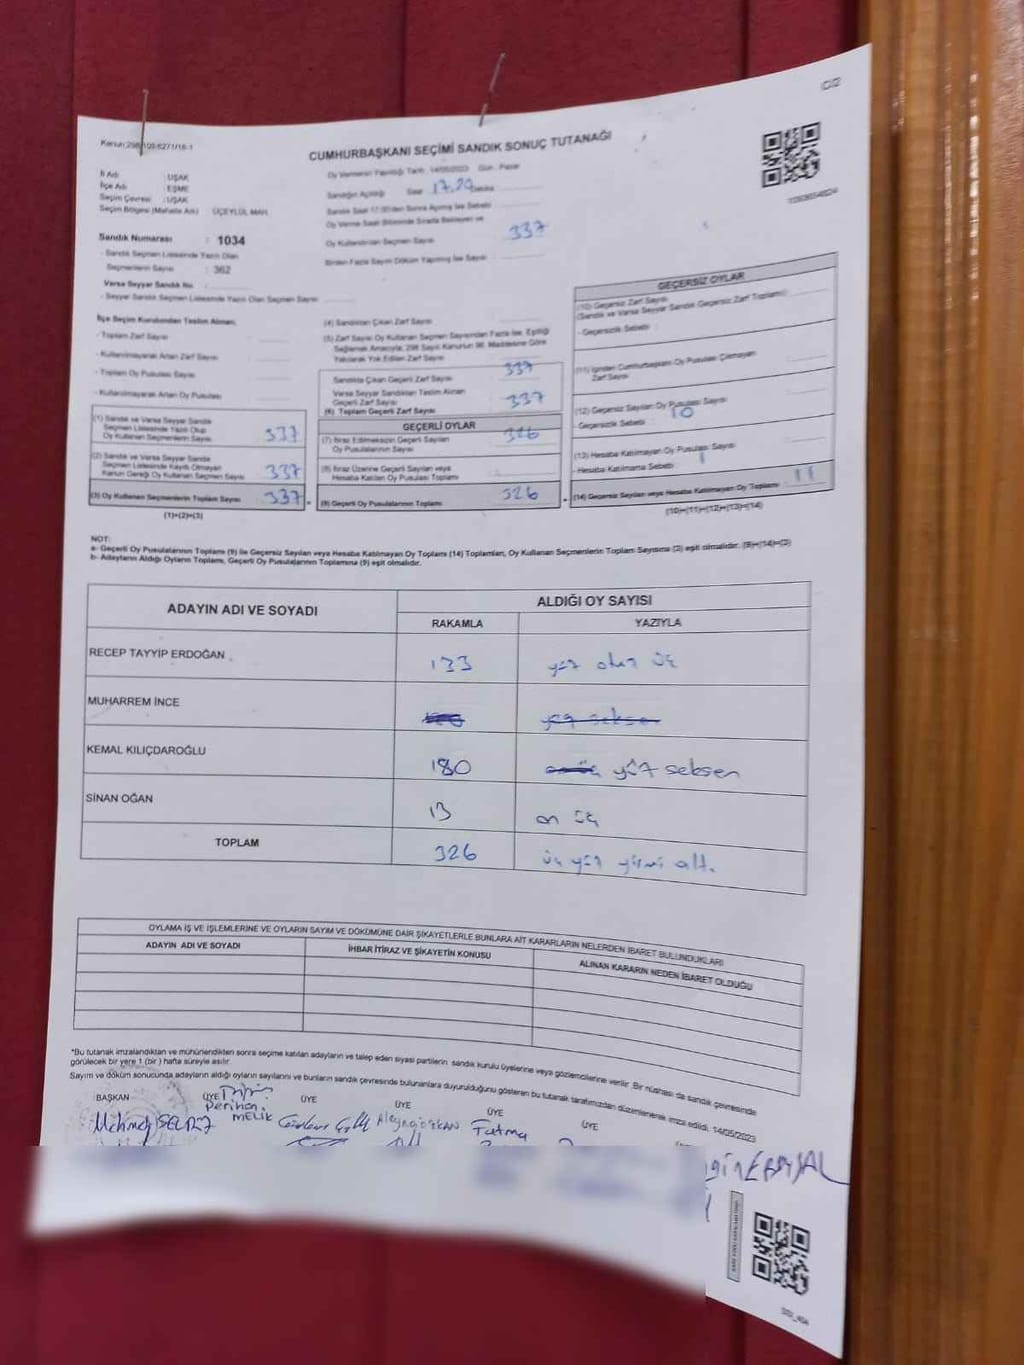 CUMHURBAŞKANI SEÇİMİ SANDIK SONUÇ TUTANAĞI
Oy Vermenin Yapıldığı Tarih : 14/05/2023 Gün : Pazar
İl Adı : UŞAK
İlçe Adı : EŞME
Seçim Çevresi : UŞAK
Seçim Bölgesi (Mahalle Adı) : ÜÇEYLÜL MAH.
Sandığın Açıldığı Saat 17.20 Dakika
Sandık Saat 17.00'den Sonra Açılmış İse Sebebi
Oy Verme Saati Bitiminde Sırada Bekleyen ve
Oy Kullandırılan Seçmen Sayısı 337
Birden Fazla Sayım Döküm Yapılmış İse Sayısı
Sandık Numarası : 1034
- Sandık Seçmen Listesinde Yazılı Olan
Seçmenlerin Sayısı : 362
Varsa Seyyar Sandık No
- Seyyar Sandık Seçmen Listesinde Yazılı Olan Seçmen Sayısı
İlçe Seçim Kurulundan Teslim Alınan;
- Toplam Zarf Sayısı
- Kullanılmayarak Artan Zarf Sayısı
- Toplam Oy Pusulası Sayısı
- Kullanılmayarak Artan Oy Pusulası
(1) Sandık ve Varsa Seyyar Sandık
Seçmen Listesinde Yazılı Olup
Oy Kullanan Seçmenlerin Sayısı 337
(2) Sandık ve Varsa Seyyar Sandık
Seçmen Listesinde Kayıtlı Olmayan
Kanun Gereği Oy Kullanan Seçmen Sayısı 337
(3) Oy Kullanan Seçmenlerin Toplam Sayısı 337
(1)+(2)=(3)
(4) Sandıktan Çıkan Zarf Sayısı
(5) Zarf Sayısı Oy Kullanan Seçmen Sayısından Fazla İse, Eşitliği
Sağlamak Amacıyla, 298 Sayılı Kanunun 98. Maddesine Göre
Yakılarak Yok Edilen Zarf Sayısı
Sandıkta Çıkan Geçerli Zarf Sayısı 337
Varsa Seyyar Sandıktan Teslim Alınan
Geçerli Zarf Sayısı 337
(6) Toplam Geçerli Zarf Sayısı
GEÇERLİ OYLAR
(7) İtiraz Edilmeksizin Geçerli Sayılan 326
Oy Pusulalarının Sayısı
(8) İtiraz Üzerine Geçerli Sayılan veya
Hesaba Katılan Oy Pusulası Toplamı
(9) Geçerli Oy Pusulalarının Toplamı 326
GEÇERSİZ OYLAR
(10) Geçersiz Zarf Sayısı
(Sandık ve Varsa Seyyar Sandık Geçersiz Zarf Toplamı)
- Geçersizlik Sebebi
(11) İçinden Cumhurbaşkanı Oy Pusulası Çıkmayan
Zarf Sayısı
(12) Geçersiz Sayılan Oy Pusulası Sayısı
- Geçersizlik Sebebi 10
(13) Hesaba Katılmayan Oy Pusulası Sayısı
- Hesaba Katılmama Sebebi 1
(14) Geçersiz Sayılan veya Hesaba Katılmayan Oy Toplamı 11
(10)+(11)+(12)+(13)=(14)
NOT:
a- Geçerli Oy Pusulalarının Toplamı (9) ile Geçersiz Sayılan veya Hesaba Katılmayan Oy Toplamı (14) Toplamları, Oy Kullanan Seçmenlerin Toplam Sayısına (3) eşit olmalıdır. (9)+(14)=(3)
b- Adayların Aldığı Oyların Toplamı, Geçerli Oy Pusulalarının Toplamına (9) eşit olmalıdır.
ADAYIN ADI VE SOYADI ALDIĞI OY SAYISI
RAKAMLA YAZIYLA
RECEP TAYYİP ERDOĞAN 133 yüz otuz üç
MUHARREM İNCE yüz seksen
KEMAL KILIÇDAROĞLU 180 yüz seksen
SİNAN OĞAN 13 on üç
TOPLAM 326 üç yüz yirmi altı
OYLAMA İŞ VE İŞLEMLERİNE VE OYLARIN SAYIM VE DÖKÜMÜNE DAİR ŞİKAYETLERLE BUNLARA AİT KARARLARIN NELERDEN İBARET BULUNDUKLARI
ADAYIN ADI VE SOYADI İHBAR İTİRAZ VE ŞİKAYETİN KONUSU ALINAN KARARIN NEDEN İBARET OLDUĞU
*Bu tutanak imzalandıktan ve mühürlendikten sonra seçime katılan adayların ve talep eden siyasi partilerin sandık kurulu üyelerine veya gözlemcilerine verilir. Bir nüshası da sandık çevresinde
görülecek bir yere 1 (bir) hafta süreyle asılır.
Sayım ve döküm sonucunda adayların aldığı oyların sayılarını ve bunların sandık çevresinde bulunanlara duyurulduğunu gösteren bu tutanak tarafımızdan düzenlenerek imza edildi. 14/05/2023
BAŞKAN ÜYE ÜYE ÜYE ÜYE ÜYE
Perihan
MELİK
Fatma